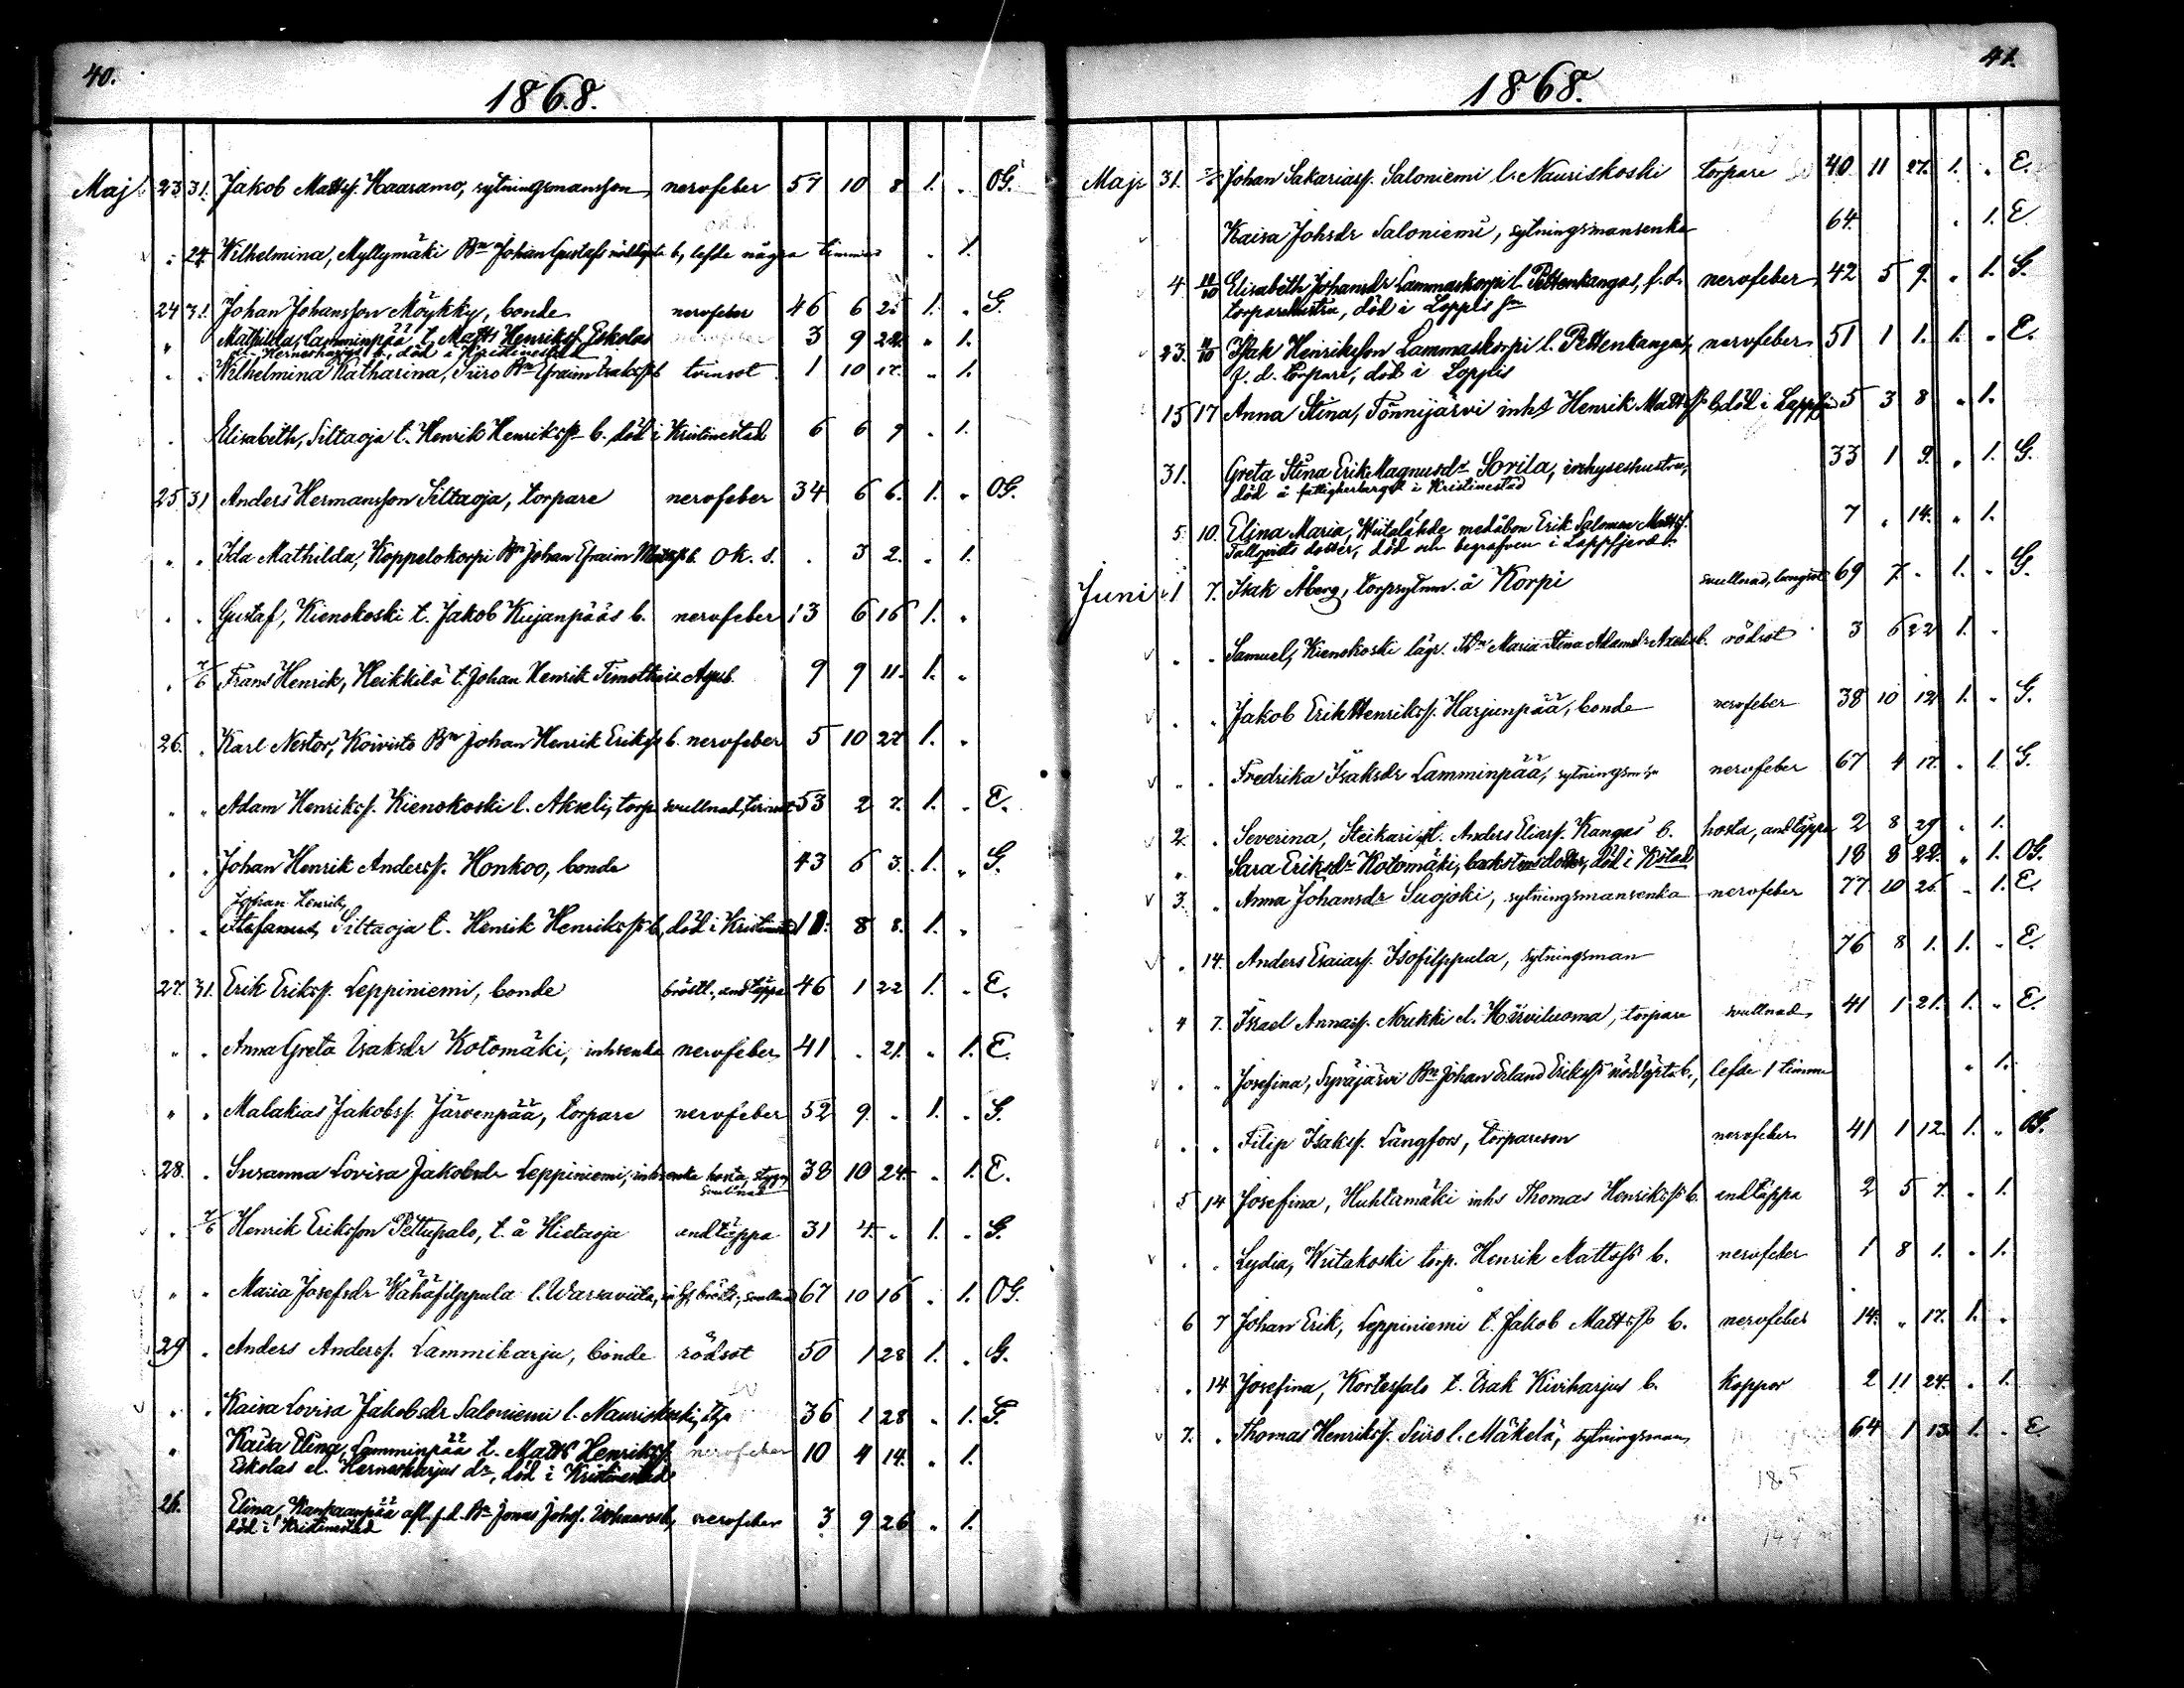 40.
1868.
Maj 23 31. Jakob Mattsf. Haaramo, sytningsmansson nervfeber 57 10 8 1. „ OG.
„ 24. Wilhelmina, Myllymäki Bn Johan Gustafs nöddöpta b., lefde några timmar „ 1.
24 31. Johan Johansson Möykky, bonde nervfeber 46 6 25 1. „ G.
„ Mathilda, Lamminpää t. Matts Henriksf. Eskolas 3 9 22. „ 1.
el. Herneharjus b., död i Kristinestad
„ „ Wilhelmina Katharina, Siiro Bn Efraim Isakss b tvinsot 1 10 17. „ 1.
„ Elisabeth, Siltaoja t. Henrik Henrikss b. död i Kristinestad 6 6 9 „ 1.
25 31 Anders Hermansson Siltaoja, torpare nervfeber 34 6 6. 1. „ OG.
„ „ Ida Mathilda, Koppelokorpi Bn Johan Efraim Mattss b. Ok. s. „ 3 2. „ 1.
„ „ Gustaf, Kienokoski t. Jakob Kujanpääs b. nervfeber 13 6 16 1. „
„ 7/6 Frans Henrik, Heikkilä t. Johan Henrik Timotheis b. 9 9 11. 1. „
26. „ Karl Nestor, Koivisto Bn Johan Henrik Erikss b. nervfeber 5 10 27 1. „
„ „ Adam Henriksf. Kienokoski l. Akseli, torp svullnad, tvinsot 53 2 7. 1. „ E.
„ „ Johan Henrik Andersf. Honkoo, bonde 43 6 3. 1. „ G.
Johan Henrik,
„ „ Stefanus, Siltaoja t. Henrik Henrikss b, död i Kristinestad 11. 8 8. 1. „
27. 31. Erik Eriksf. Leppiniemi, bonde bröstl., andtäppa 46 1 22 1. „ E.
„ „ Anna Greta Isaksdr Kotomäki, inhsenka nervfeber 41 „ 21. „ 1. E.
„ „ Malakias Jakobsf. Järvenpää, torpare nervfeber 52 9. „ 1. „ G.
28. „ Susanna Lovisa Jakobsdr Leppiniemi, inhsenka hosta, styng, 38 10 24. „ 1. E.
svullnad
„ 7/6 Henrik Eriksson Pettupalo, t. å Hietaoja andtäppa 31 4. „ 1. „ G.
„ „ Maria Josefsdr Wähäfilppula l. Warsaviita, inhs, bröstv., svullnad 67 10 16 „ 1. OG.
29 „ Anders Andersf. Lammiharju, bonde rödsot 50 1 28 1. „ G.
„ „ Kaisa Lovisa Jakobsdr Saloniemi l. Nauriskoski, 36 1 28 „ 1. G.
„ Kaisa Elina, Lamminpää t. Matts Henriksf. nervfeber 10 4 14. „ 1.
Eskolas el. Herneharjus dr, död i Kristinestad
26. Elina, Kankaanpää afl. f.d. Bn Jonas Johsf. b, nervfeber 3 9 26 „ 1.
död i Kristinestad
41.
1868.
Maj 31. Johan Sakariasf. Saloniemi l. Nauriskoski torpare 40 11 27. 1. „ E.
Kaisa Johsdr Saloniemi, sytningsmansenka 64. „ 1. E
4 11/10 Elisabeth Johansdr Lammaskorpi l. Pettenkangas, f.d. nervfeber 42 5 9. „ 1. G.
torparehustru, död i Loppis sn
23. 11/10 Isak Henriksson Lammaskorpi l. Pettenkangas, nervfeber 51 1 1. 1. „ E.
f. d. torpare, död i Loppis
15 17 Anna Stina, Tönnijärvi inhs Henrik Mattss b, död i 5 3 8 „ 1.
31. Greta Stina Erik Magnusdr Sorila, inhyseshustru, 33 1 9. „ 1. G.
död å fattigherberget i Kristinestad
5 10. Elina Maria, Wiitalähde medåbon Erik Salomon Mattsf. 7 „ 14. „ 1.
Tallqvists dotter, död och begrafven i Lappfjerd.
Juni 1 7. Isak Åberg, torpsytnm. å Korpi svullnad, lungsot 69 7. „ 1. „ G.
„ „ Samuel, Kienokoski lägr. Maria Stina Adamsdr b. rödsot 3 6 22 1. „
„ „ Jakob Erik Henriksf. Harjunpää, bonde nervfeber 38 10 12 1. „ G.
„ „ Fredrika Isaksdr Lamminpää, sytningsm. nervfeber 67 4 17. „ 1. G.
2. „ Severina, Steikari t. Anders Eliasf. Kangas b. hosta, andtäppa 2 8 29 „ 1.
„ Sara Eriksdr Kotomäki, backstusdotter, död i Kstad 18 8 22. „ 1. OG.
3. „ Anna Johansdr Suojoki, sytningsmansenka nervfeber 77 10 26 „ 1. E.
„ 14. Anders Esaiasf. Isofilppula, sytningsman 76 8 1. 1. „ E.
4 7. Israel Annasf. Nukki el. Harviluoma, torpare svullnad 41 1 21. 1. „ E.
„ „ Josefina, Syväjärvi Bn Johan Erland Erikss nöddöpta b., lefde 1 timme „ 1.
„ „ Filip Isaksf. Långfors, torpareson nervfeber 41 1 12. 1. „ OG.
5 14 Josefina, Huhtamäki inhs Thomas Henrikss b. andtäppa 2 5 7. „ 1.
„ „ Lydia, Writakoski torp. Henrik Mattss b. nervfeber 1 8 1. „ 1.
6 7 Johan Erik, Leppiniemi t. Jakob Mattss b. nervfeber 14. „ 17. 1. „
„ 14 Josefina, Kortespalo t. Isak Kiviharjus b. koppor 2 11 24. „ 1.
7. „ Thomas Henriksf. Siiro l. Mäkelä, sytningsman 64 1 13. 1. „ E